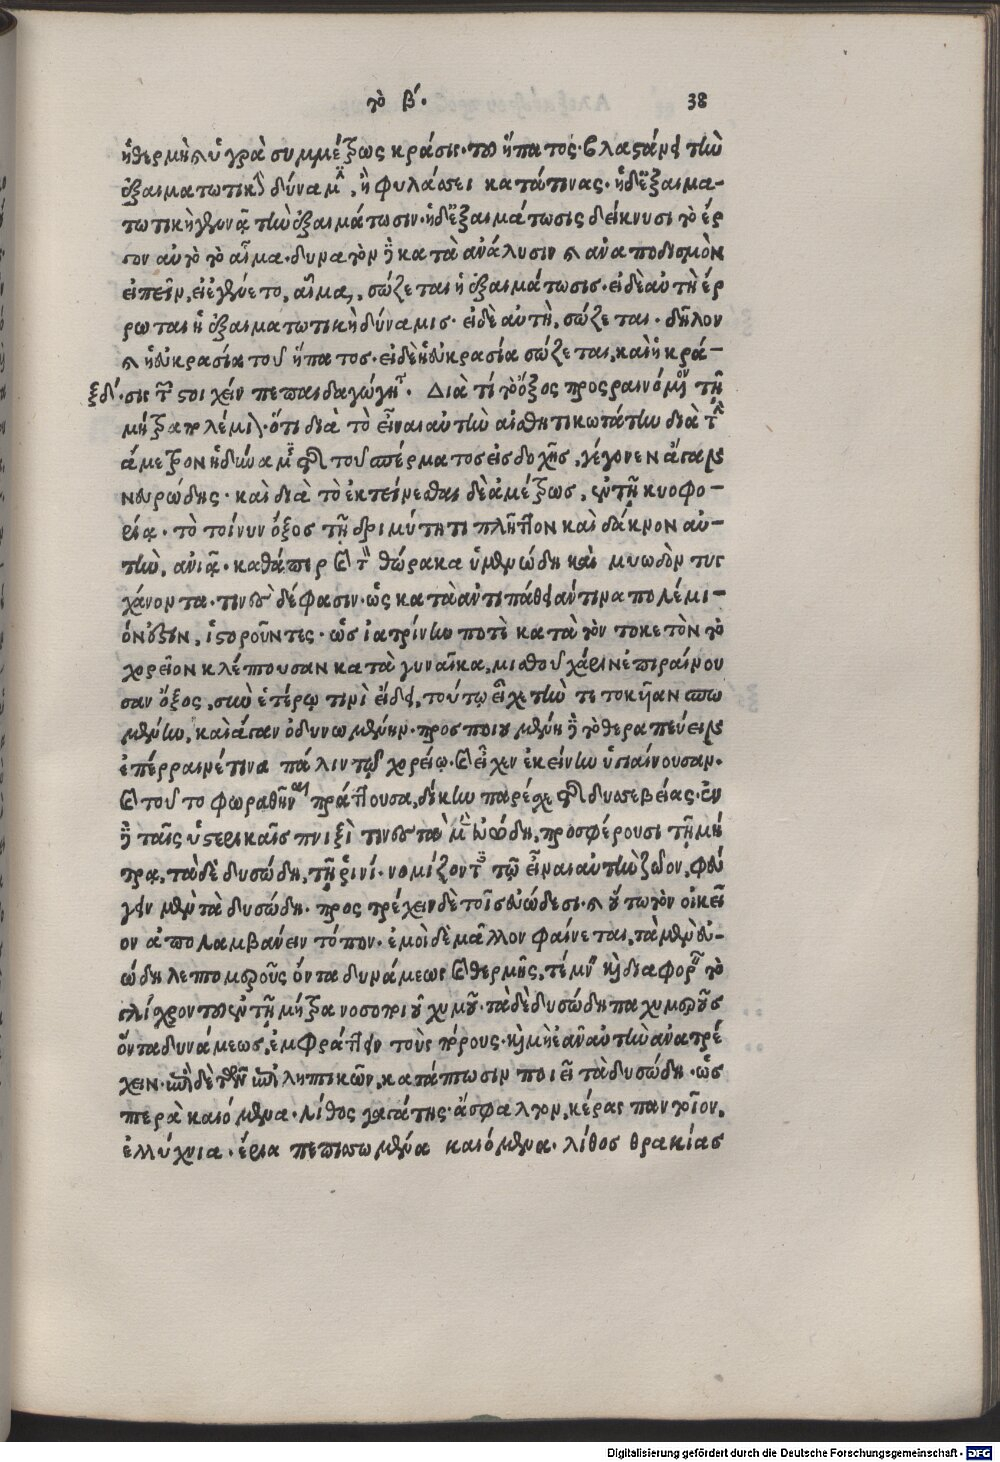 τὸ β΄. 38
ἡ θερμὴ καὶ ὑγρὰ συμμέτρως κράσις· τοῦ ἥπατος· βλαστάνει τὴν
ἐξαιματωτικὴν δύναμιν, ἢ φυλάσσει κατά τινας· ἡ δὲ ἐξαιμα-
τωτικὴ γεννᾷ τὴν ἐξαιμάτωσιν· ἡ δὲ ἐξαιμάτωσις δείκνυσι τὸ ἔρ
γον αὐτὸ τὸ αἷμα· δυνατὸν δὲ κατὰ ἀνάλυσιν καὶ ἀναποδισμὸν
εἰπεῖν, εἰ ἐγένετο, αἷμα, σώζεται ἡ ἐξαιμάτωσις· εἰ δὲ αὐτὴ ἔρ
ρωται ἡ ἐξαιματωτικὴ δύναμις· εἰ δὲ αὐτὴ, σώζεται· δῆλον
καὶ ἡ εὐκρασία τοῦ ἥπατος· εἰ δὲ ἡ εὐκρασία σώζεται, καὶ ἡ κρά-
ξδ΄. σις τῶν στοιχείων πεπαιδαγώγηται. Διὰ τί τὸ ὄξος προσραινόμενον τῇ
μήτρᾳ πολέμιον· ὅτι διὰ τὸ εἶναι αὐτὴν αἰσθητικωτάτην διὰ τὴν
ἄμετρον ἡδυπάθειαν τοῦ σπέρματος εἰσδοχῆς, γέγονεν ἅπασα
νευρώδης· καὶ διὰ τὸ ἐκτείνεσθαι δὲ ἀμέτρως, ἐν τῇ κυοφο-
ρίᾳ· τὸ τοίνυν ὄξος τῇ δριμύτητι πλῆττον καὶ δάκνον αὐ-
τὴν, ἀνιᾷ· καθάπερ καὶ τὸν θώρακα ὑμενώδη καὶ μυωδὸν τυγ
χάνοντα· τινὲς δέ φασιν· ὡς κατὰ ἀντιπάθειάν τινα πολέμι-
όν ἐστιν, ἱστοροῦντες· ὡς ἰατρίνην ποτὲ κατὰ τὸν τοκετὸν τὸ
χορεῖον κλέπτουσαν κατὰ γυναῖκα, μισθοῦ χάριν ἐπιραίνου
σαν ὄξος, σὺν ἑτέρῳ τινὶ εἴδει, τούτῳ εἶχε τὴν τετοκῆαν σπω
μένην, καὶ ἄγαν ὀδυνωμένην· προσποιουμένη δὲ τὸ θεραπεύειν
ἐπέρραινέ τινα πάλιν τῷ χορείῳ· καὶ εἶχεν ἐκείνην ὑγιαίνουσαν·
καὶ τοῦτο φωραθῆναι πράττουσα, δίκην παρέχει τῆς δυσσεβείας· ἐν
δὲ ταῖς ὑστερικαῖς πνιξὶ τινὲς τὰ μὲν εὐώδη, προσφέρουσι τῇ μή
τρᾳ, τὰ δὲ δυσώδη, τῇ ῥινί· νομίζοντες τῷ εἶναι αὐτὴν ζῶον, φεύ
γειν μὲν τὰ δυσώδη· προστρέχειν δὲ τοῖς εὐώδεσι· καὶ οὕτω τὸν οἰκεῖ
ον ἀπολαμβάνειν τόπον· ἐμοὶ δὲ μᾶλλον φαίνεται, τὰ μὲν εὐ-
ώδη λεπτομεροῦς ὄντα δυνάμεως καὶ θερμῆς, τέμνειν καὶ διαφορεῖν τὸ
γλίσχρον τοῦ ἐν τῇ μήτρᾳ νοσοποιοῦ χυμοῦ· τὰ δὲ δυσώδη παχυμεροῦς
ὄντα δυνάμεως, ἐμφράττειν τοὺς πόρους· καὶ μὴ ἐᾶν αὐτὴν ἀνατρέ
χειν· ἐπὶ δὲ τῶν ἐπιληπτικῶν, κατάπτωσιν ποιεῖ τὰ δυσώδη· ὥσ
περ ἃ καιόμενα· λίθος γαγάτης· ἄσφαλτον, κέρας παντοῖον,
ἐλλύχνια· ἔρια πεπισσωμένα καιόμενα· λίθος θρακίας
Digitalisierung gefördert durch die Deutsche Forschungsgemeinschaft - DFG